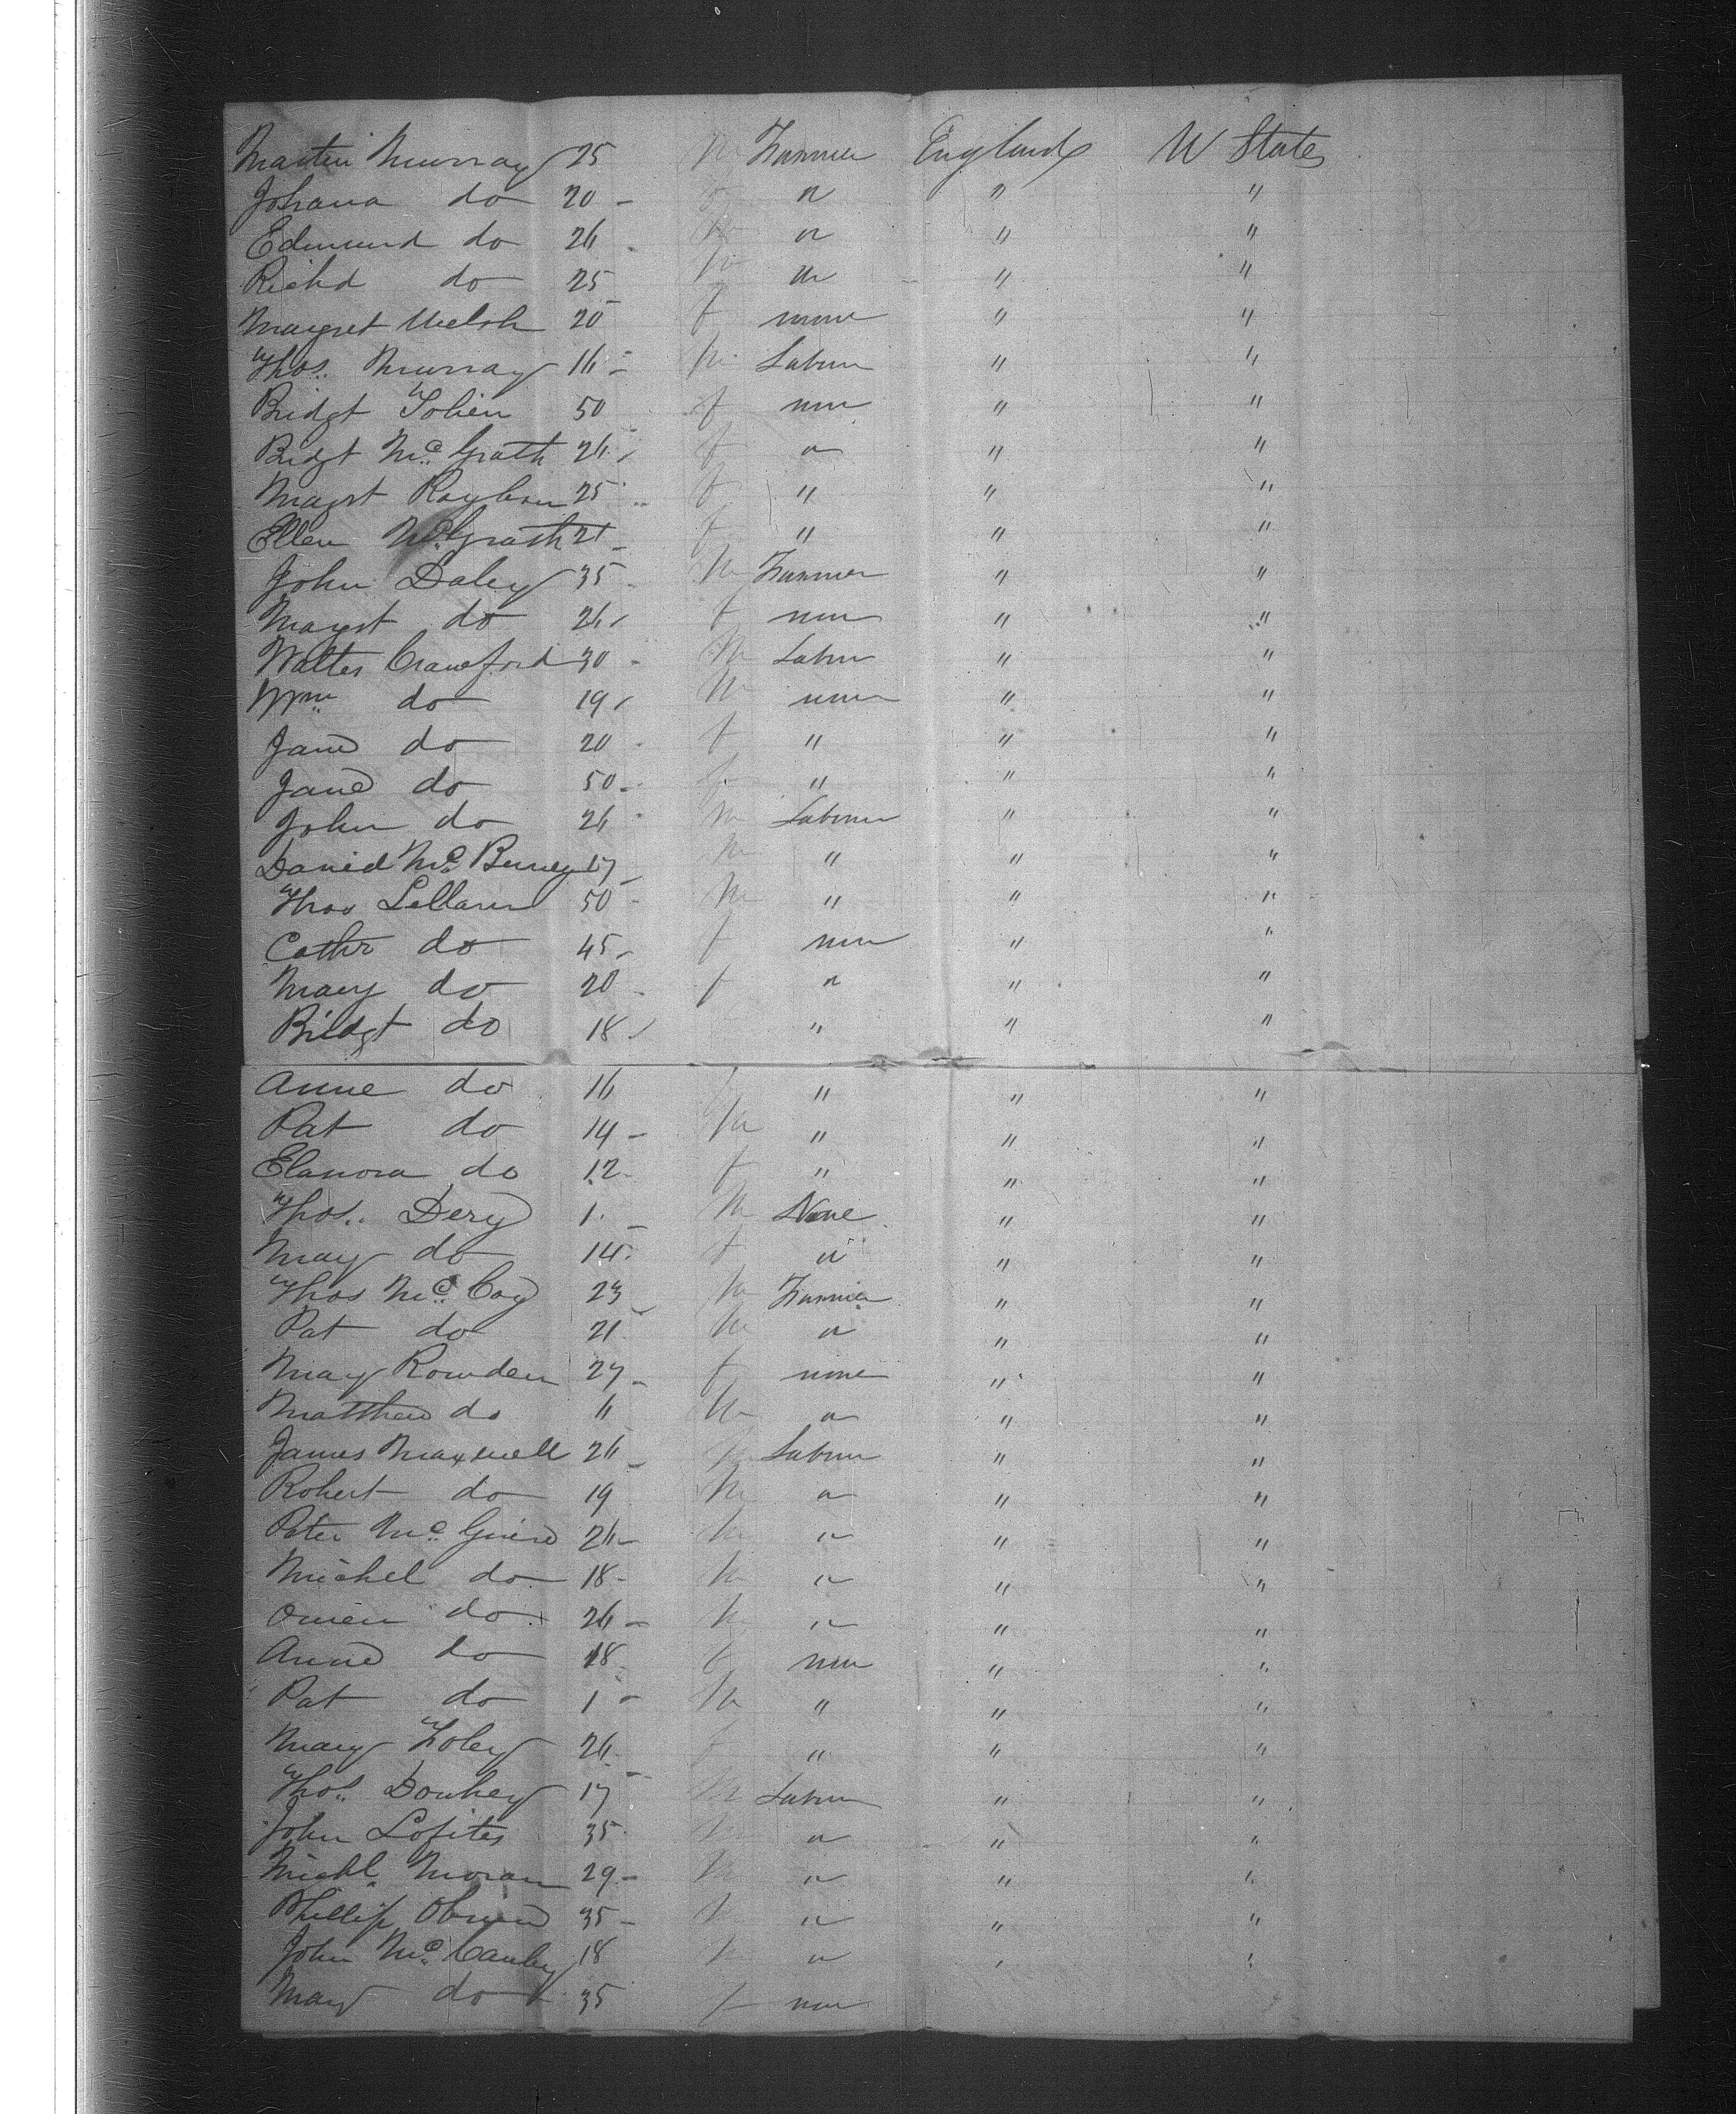 Martin Murray 25 M Farmer England U States
Johana do 20 - f " " "
Edmund do 26 - M " " "
Richd do 25 M " " "
Margret Welsh 20 f none " "
Thos. Murray 16 - M Labour " "
Bridgt Tobin 50 f none " "
Bridgt McGrath 26 f " " "
Magrt 25 f " " "
Ellen McGrath 21 - f " " "
John Daley 35 - M Farmer " "
Margt do 26 f none " "
Walter Crawford 30 - M Labour " "
Wm do 19 M none " "
Jane do 20 - f " " "
Jane do 50 - f " " "
John do 26 - M Labour " "
David Mc 17 - M " " "
Thos 50 - M " " "
Cathr do 45 - f none " "
Mary do 20 - f " " "
Bridgt do 18 " " "
Anne do 16 f " " "
Pat do 14 - M " " "
Elanora do 12 - f " " "
Thos. Dery 1 - M None " "
Mary do 14 - f " " "
Thos McCoy 23 M Farmer " "
Pat do 21 - M " " "
Mary Rowden 27 - f none " "
Matthew do 11 M " " "
James Maxwell 26 - M Labour " "
Robert do 19 M " " "
Peter McGuire 26 - M " " "
Michel do 18 - M " " "
Owen do 26 - M " " "
Anne do 18 - f none " "
Pat do 1 - M " " "
Mary Foley 26 - f " " "
Thos. 17 M Labour " "
John 35 M " " "
Michl. Moran 29 - M " " "
Phillip Obrien 35 - M " " "
John Mc 18 M " " "
Mary do 35 f none